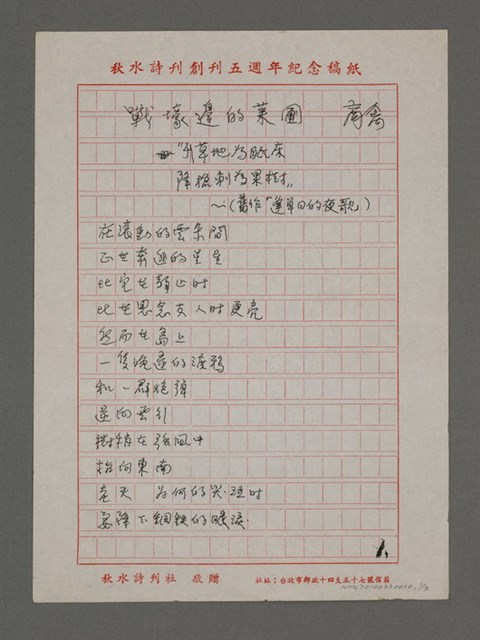 秋水詩刊創刊五週年紀念稿紙
戰壕邊的菜圃
草地為眠床
降 刺為果樹
(舊作 的夜歌)
在滾動的雲朵間
正在奔逝的星星
比它在靜止时
比在思念友人时更亮
然而在島上
一隻晚歸的渡鴉
和一群炮彈
逆向雲引
樹梢在强風中
指向東南
老天 為何的哭泣时
要降下鋼鉄的眼淚
1.
秋水詩刊社 敬贈
社址:台北市郵政十四支五十七號信箱